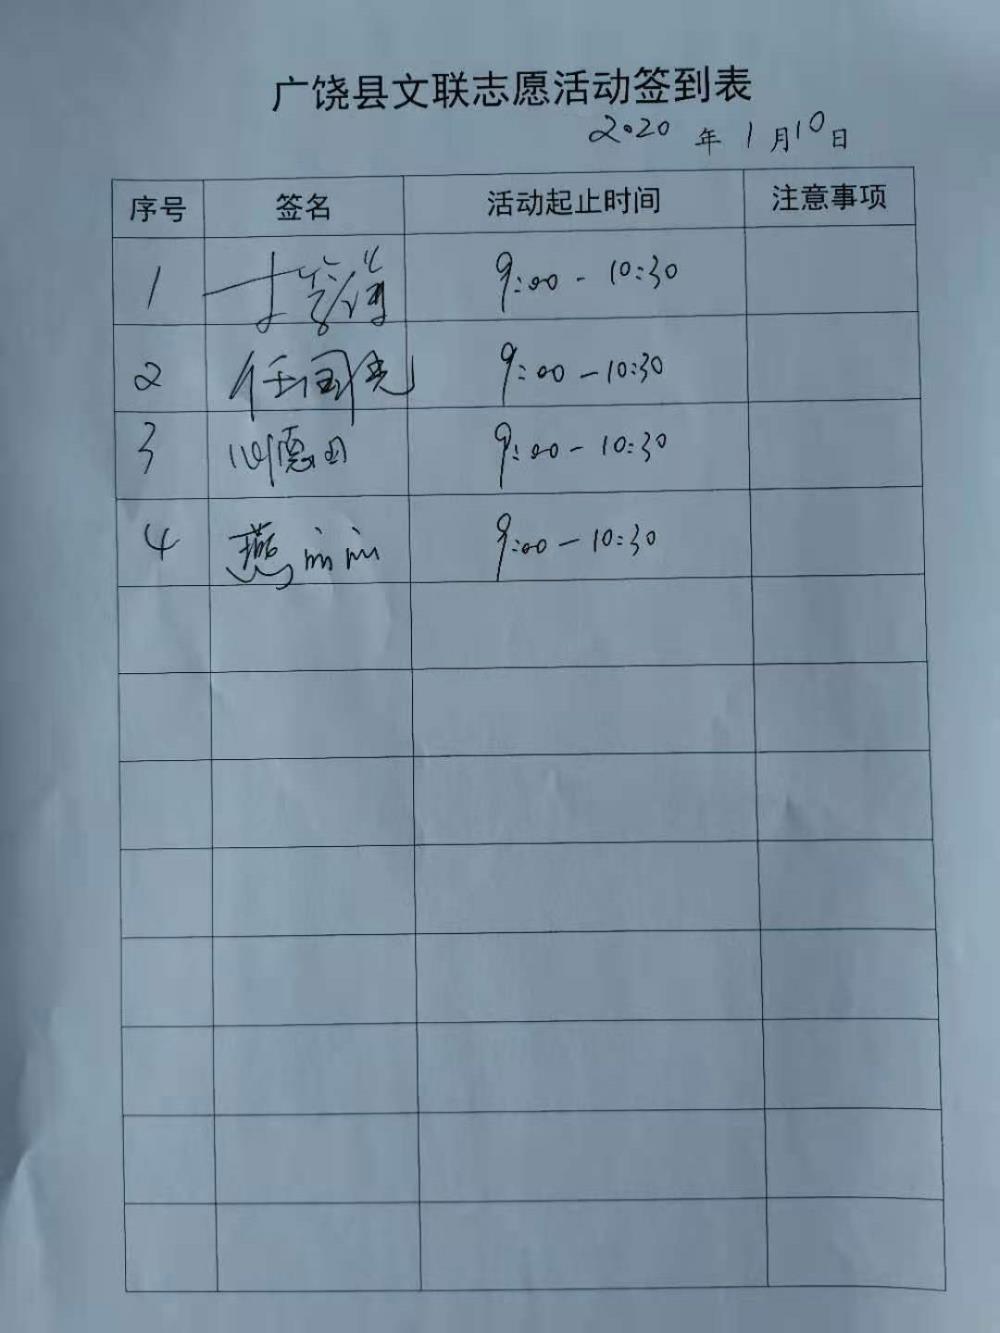 广饶县文联志愿活动签到表
2020 年 1 月 10 日
序号 签名 活动起止时间 注意事项
1 9:00-10:30
2 任国光 9:00-10:30
3 9:00-10:30
4 燕丽丽 9:00-10:30